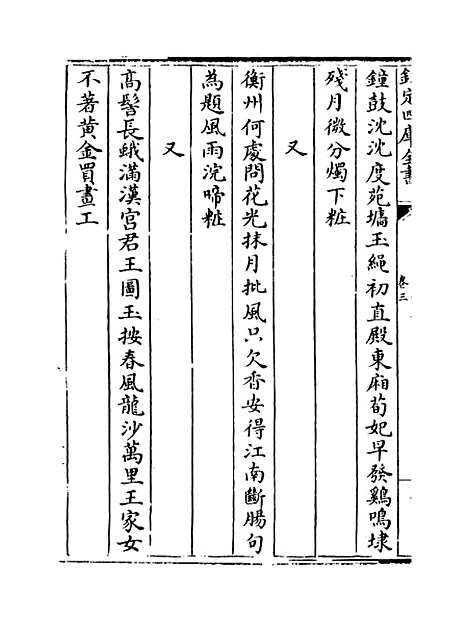 欽定四庫全書
卷三
鐘鼓沈沈度苑墻玉繩初直殿東廂荀妃早發鷄鳴埭
殘月微分燭下粧
又
衡州何處問花光抹月批風只欠香安得江南斷腸句
為題風雨浣啼粧
又
髙髻長蛾滿漢宫君王圖玉按春風龍沙萬里王家女
不著黄金買畫工